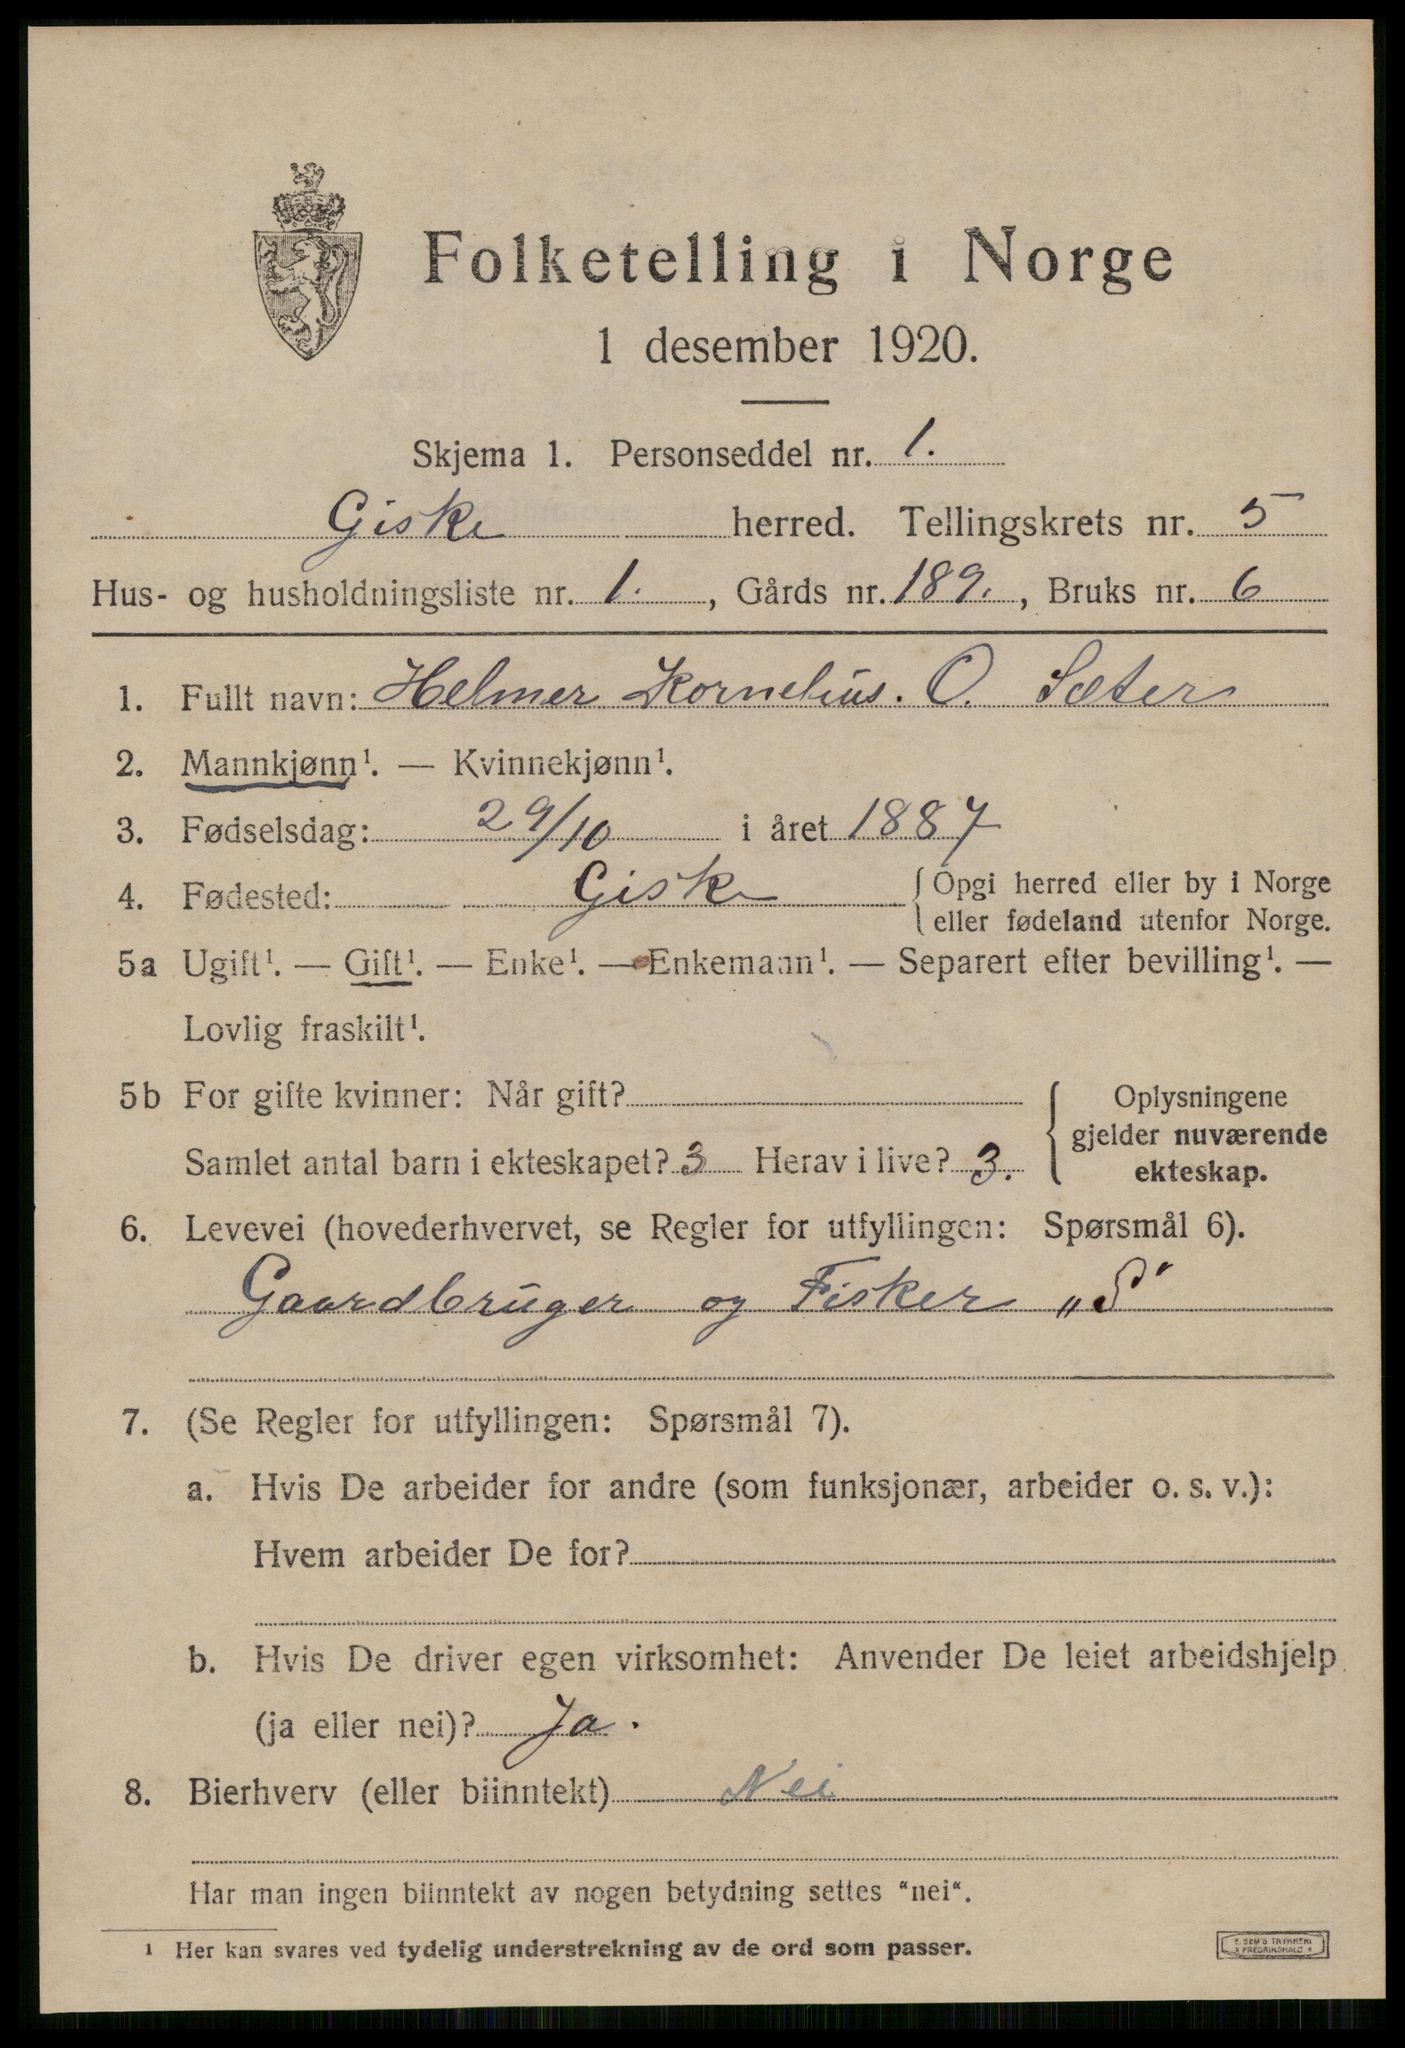 Folketelling i Norge
1 desember 1920.
Skjema 1. Personseddel nr. 1.
Giske herred. Tellingskrets nr. 5
Hus- og husholdningsliste nr. 1. , Gårds nr. 189. , Bruks nr. 6
1. Fullt navn: Helmer Kornelius. O. Sæter
2. Mannkjønn¹. — Kvinnekjønn¹.
3. Fødselsdag: 29/10 i året 1887
4. Fødested: Giske { Opgi herred eller by i Norge
eller fødeland utenfor Norge.
5a Ugift¹. — Gift¹. — Enke¹. — Enkemann¹. — Separert efter bevilling¹. —
Lovlig fraskilt¹.
5b For gifte kvinner: Når gift?
Samlet antal barn i ekteskapet? 3 Herav i live? 3.
{ Oplysningene
gjelder nuværende
ekteskap.
6. Levevei (hovederhvervet, se Regler for utfyllingen: Spørsmål 6).
Gaardbruger og Fisker „S"
7. (Se Regler for utfyllingen: Spørsmål 7).
a. Hvis De arbeider for andre (som funksjonær, arbeider o. s. v.):
Hvem arbeider De for?
b. Hvis De driver egen virksomhet: Anvender De leiet arbeidshjelp
(ja eller nei)? Ja.
8. Bierhverv (eller biinntekt) Nei
Har man ingen biinntekt av nogen betydning settes “nei“.
¹ Her kan svares ved tydelig understrekning av de ord som passer.
E. SEM'S TRYKKERI
FREDRIKSHALD